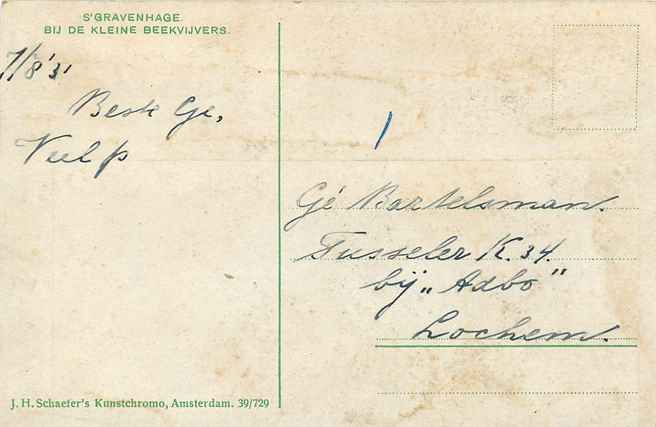 S'GRAVENHAGE.
BIJ DE KLEINE BEEKVIJVERS.
7/8 '31
Beste Gé,
Veel p
Gé Bartelsman.
Tusseler K. 34.
bij „Adbo"
Lochem.
J. H. Schaefer's Kunstchromo, Amsterdam. 39/729